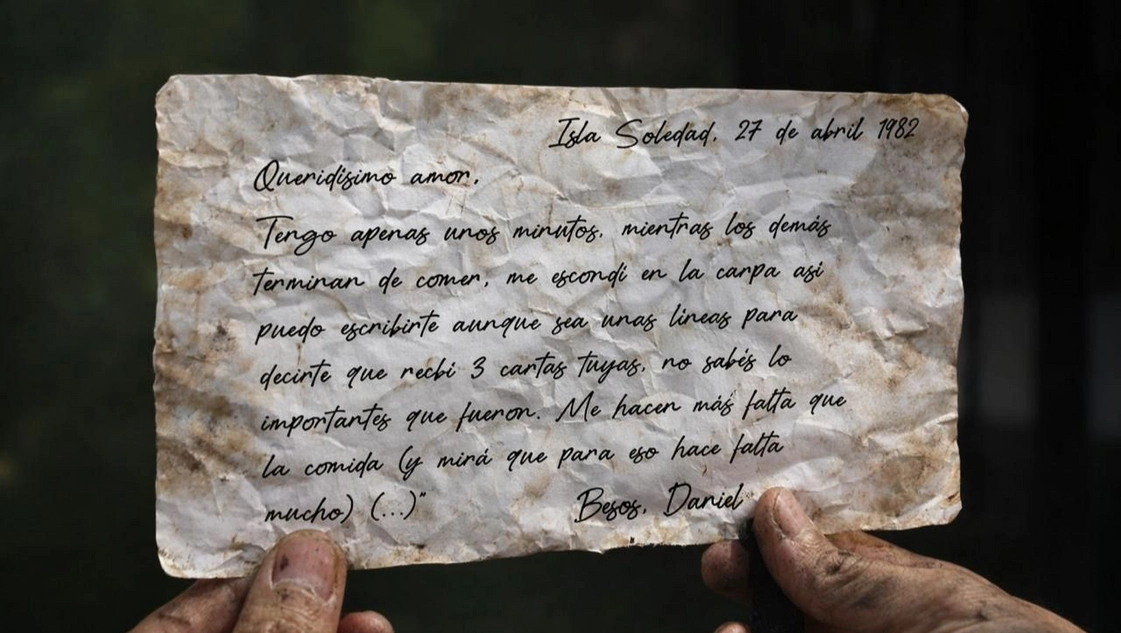 Isla Soledad, 27 de abril 1982
Queridísimo amor,
Tengo apenas unos minutos, mientras los demás
terminan de comer, me escondí en la carpa así
puedo escribirte aunque sea unas líneas para
decirte que recbí 3 cartas tuyas, no sabés lo
importantes que fueron. Me hacen más falta que
la comida (y mirá que para eso hace falta
mucho) (...)" Besos, Daniel